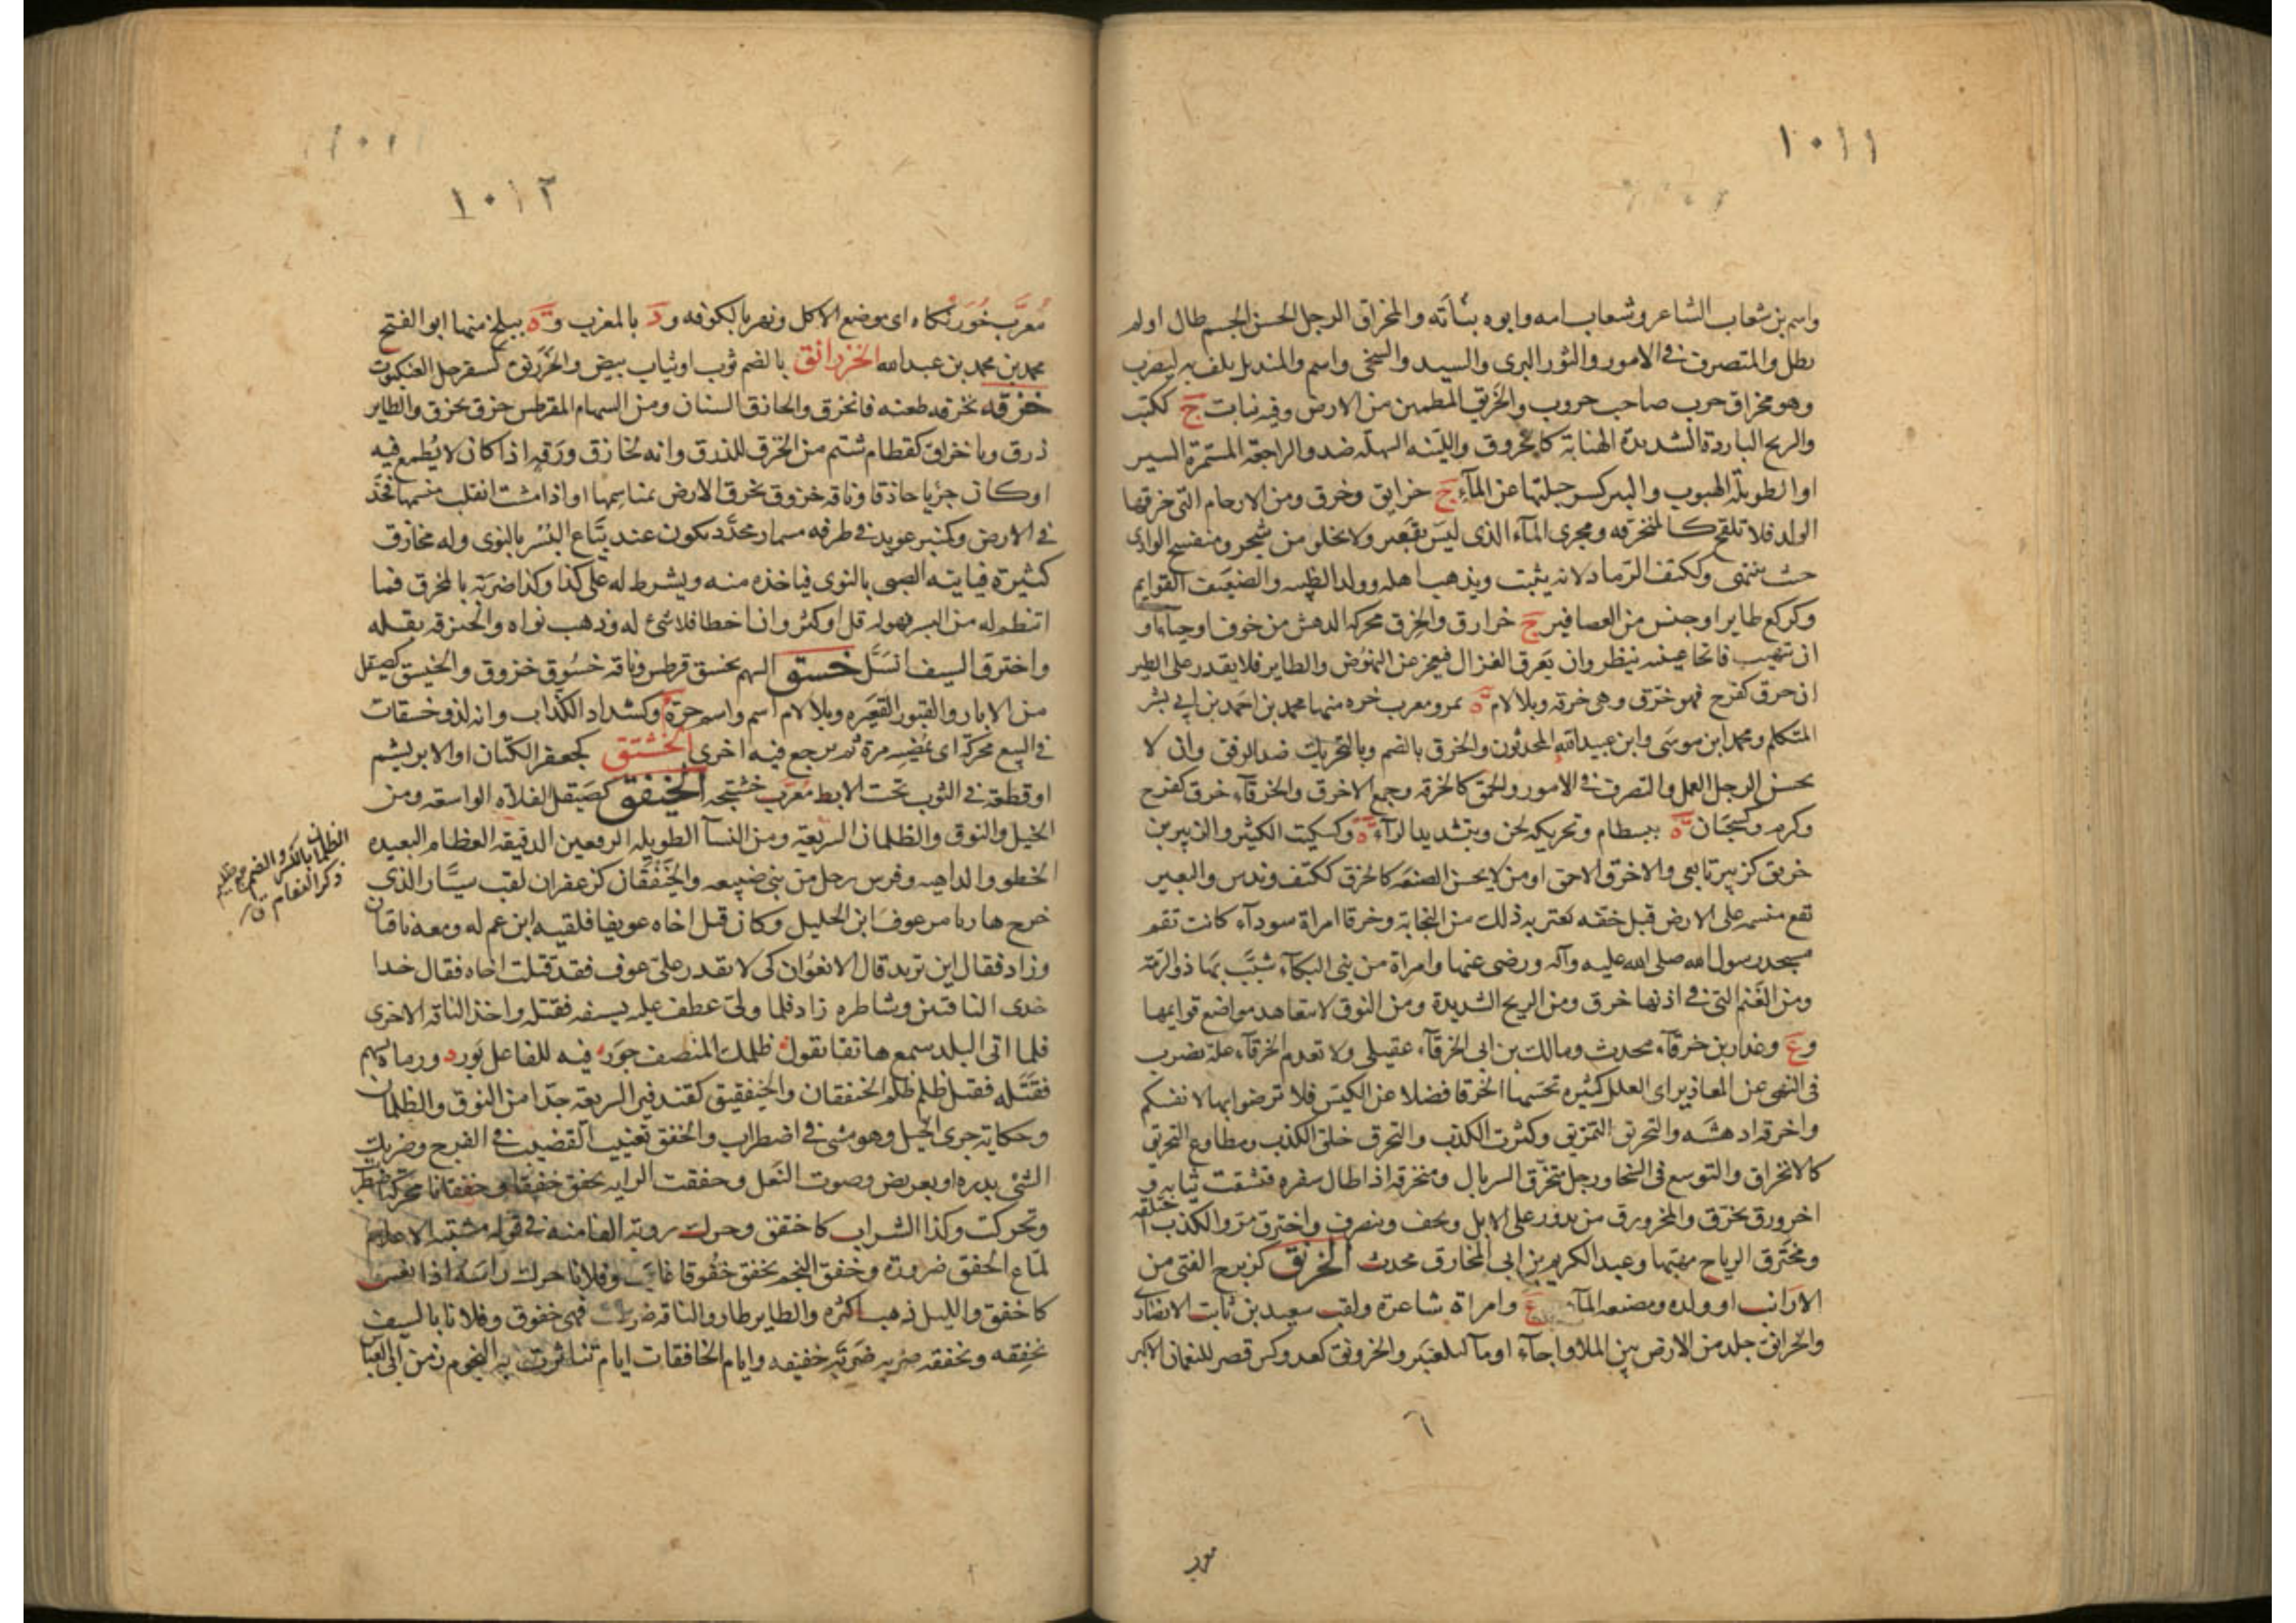 ١٠١١
واسم بن شعاب الشاعر وشعاب امه وابوه بنأنه والمخراق الرجل الحسن الجسم طال او لم
يطل والمتصرف في الامور والثور البري والسيد والسخي واسم والمنديل يلف به ليضرب
وهو مخراق حرب صاحب حروب والخريق المطمئن من الارض وفيه نبات ج ككتب
والريح الباردة الشديدة الهبابة كالخروق والليّنه السهله ضد والراجعة المستمرة السير
او الطويلة الهبوب والبئر كسر جبلتها عن المآء ج خرايق وخرق ومن الارحام التي خرقها
الولد فلا تلقح كالمنخرقه ومجرى المآء الذي ليس بقعير ولا يخلو من شجر ومنفسح الوادي
حيث ينتهى وككتف الرماد لانه يثبت ويذهب اهله وولد الظبيه والضعيف القوايم
وكركع طاير او جنس من العصافير ج خرارق والخرق محركه الدهش من خوف او حيآء او
ان تبهت فاتحا عينيه ينظر وان يفرق الغزال فيعجز عن النهوض والطاير فلا يقدر على الطير
ان خرق كفرح فهو خرق وهى خرقه وبلا لام ة بمرو معرب خره منها محمد بن احمد بن ابي بشر
المتكلم ومحمد ابن موسى وابن عبيد الله المحدثون والخرق بالضم وبالتحريك ضد الرفق وان لا
يحسن الرجل العمل والتصرف في الامور والحمق كالخرقه وجمع الاخرق والخرقآء خرق كفرح
وكرم وكسحبان ة ببسطام وتحريكه لحن وبتشديد الرآء ة وكسكيت الكثير والزبير بن
خريق كزبير تابعي والاخرق الاحمق او من لا يحسن الصنعه كالخرق ككتف وندس والبعير
تقع منسمه على الارض قبل خفه يعتريه ذلك من النجابة وخرقا امراة سودآء كانت تقم
مسجد رسول الله صلى الله عليه وآله ورضى عنها وامراة من بني البكآء شبّب بها ذو الرمة
ومن الغنم التي في اذنها خرق ومن الريح الشديدة ومن النوق لا تتعاهد مواضع قوايمها
وع وغدار بن خرقآء محدث ومالك بن ابي الخرقآء عقيلي ولا تعدم الخرقآء علة يضرب
في النهي عن المعاذير اي العلل كثيره تحسنها الخرقا فضلا عن الكيس فلا ترضوا بها لانفسكم
واخرقه ادهشه والتخريق التمزيق وكثرت الكذب والتخرق خلق الكذب ومطاوع التخريق
كالانخراق والتوسع في السخا ورجل متخرّق السربال ومنخرقه اذا طال سفره فتشقت ثيابه و
اخرورق تخرّق والمخرورق من يدور على الابل ويخف ويتصرف واخترق مرّ والكذب اختلقه
ومخترق الرياح مهبّها وعبد الكريم بن ابي المخارق محدث الخرنق كزبرج الفتى من
الارانب او ولده ومصنعه المآء ع وامراة شاعرة ولقب سعيد بن ثابت الانصارى
والخرانق جلد من الارض بين الملا واجآء او مآ لبلعنبر والخرونق كعدوكس قصر للنعمان الاكبر
٦
معرب
١٠١٢
معرّب خورنكاه اي موضع الاكل ونهر بالكوفه ود بالمغرب وة ببلخ منها ابو الفتح
محمد بن محمد بن عبد الله الخزرانق بالضم ثوب او ثياب بيض والخزرنق كسفرجل العنكبوت
خزقه يخزقه طعنه فانخزق والخازق السنان ومن السهام المقرطس خزق يخزق والطاير
ذرق ويا خزاق كقطام شتم من الخزق للذرق وانه لخازق ورقه اذا كان لا يُطمع فيه
او كان جريا حاذقا وناقه خزوق تخزق الارض بمناسمها او اذا مشت انقلب منسمها فخدّ
في الارض وكمنبر عويد في طرفه مسمار محدّد يكون عند بيّاع البُسْر بالنوى وله مخازق
كثيرة فياتيه الصبي بالنوى فياخذه منه ويشرط له على كذا وكذا ضربة بالمخزق فما
انتظم له من البسر فهو له قل او كثر وان اخطا فلا شئ له وذهب نواه والخزقه بقله
واخترق السيف انسلّ خسق السهم يخسق قرطس وناقه خسوق خزوق والخيسق كصيقل
من الابار والقبور القعيره وبلا لام اسم واسم حرة وكشداد الكذاب وانه لذو خسقات
في البيع محركة اى يمضيه مرة ثم يرجع فيه اخرى الخشتق كجعفر الكتان او الابريشم
او قطعة في الثوب تحت الابط معرب خشتجه الخيفق كصيقل الفلاة الواسعه ومن
الخيل والنوق والظلمان السريعة ومن النسآ الطويله الرفغين الدقيقه العظام البعيده
الخطو والداهيه وفرس رجل من بني ضبيعه والخيفقان كزعفران لقب سيّار الذي
خرج هاربا من عوف ابن الخليل وكان قتل اخاه عويفا فلقيه ابن عم له ومعه ناقتان
وزاد فقال اين تريد قال الانعوان كى لا يقدر على عوف فقد قتلت اخاه فقال خذا
حدى الناقتين وشاطره زاده فلما ولى عطف عليه بسيفه فقتله واخذ الناقة الاخرى
فلما اتى البلد سمع هاتفا يقول ظلمك المنصف جور فيه للفاعل بَور ورماه بسهم
فقتّله فقيل ظلم ظلم الخنفقان والخيفقيق كقندفير السريعة جدا من النوق والظلمان
وحكاية جرى الخيل وهو مشي في اضطراب والخفق تغييب القضيب في الفرج وضربك
الشئ بدره او بعريض وصوت النعل وخفقت الرايه تخفق خفقا وخفقانا محركة اضطربت
وتحركت وكذا السراب كاختفق وحرك رؤبة الفا منه في قوله مشتبه الاعلام
لمّاع الخفق ضرورة وخفق النجم يخفق خفوقا غاب وفلانا حرك راسه اذا نعس
كاخفق والليل ذهب اكثره والطاير طار والناقة ضرطت فهى خفوق وفلانا بالسيف
يخفقه ويخفقه ضربه ضربة خفيفه وايام الخافقات ايام تناثرت به النجوم زمن ابي العبا
الظلمان بالكسر والضم جمع ظليم
ذكر النعام ق